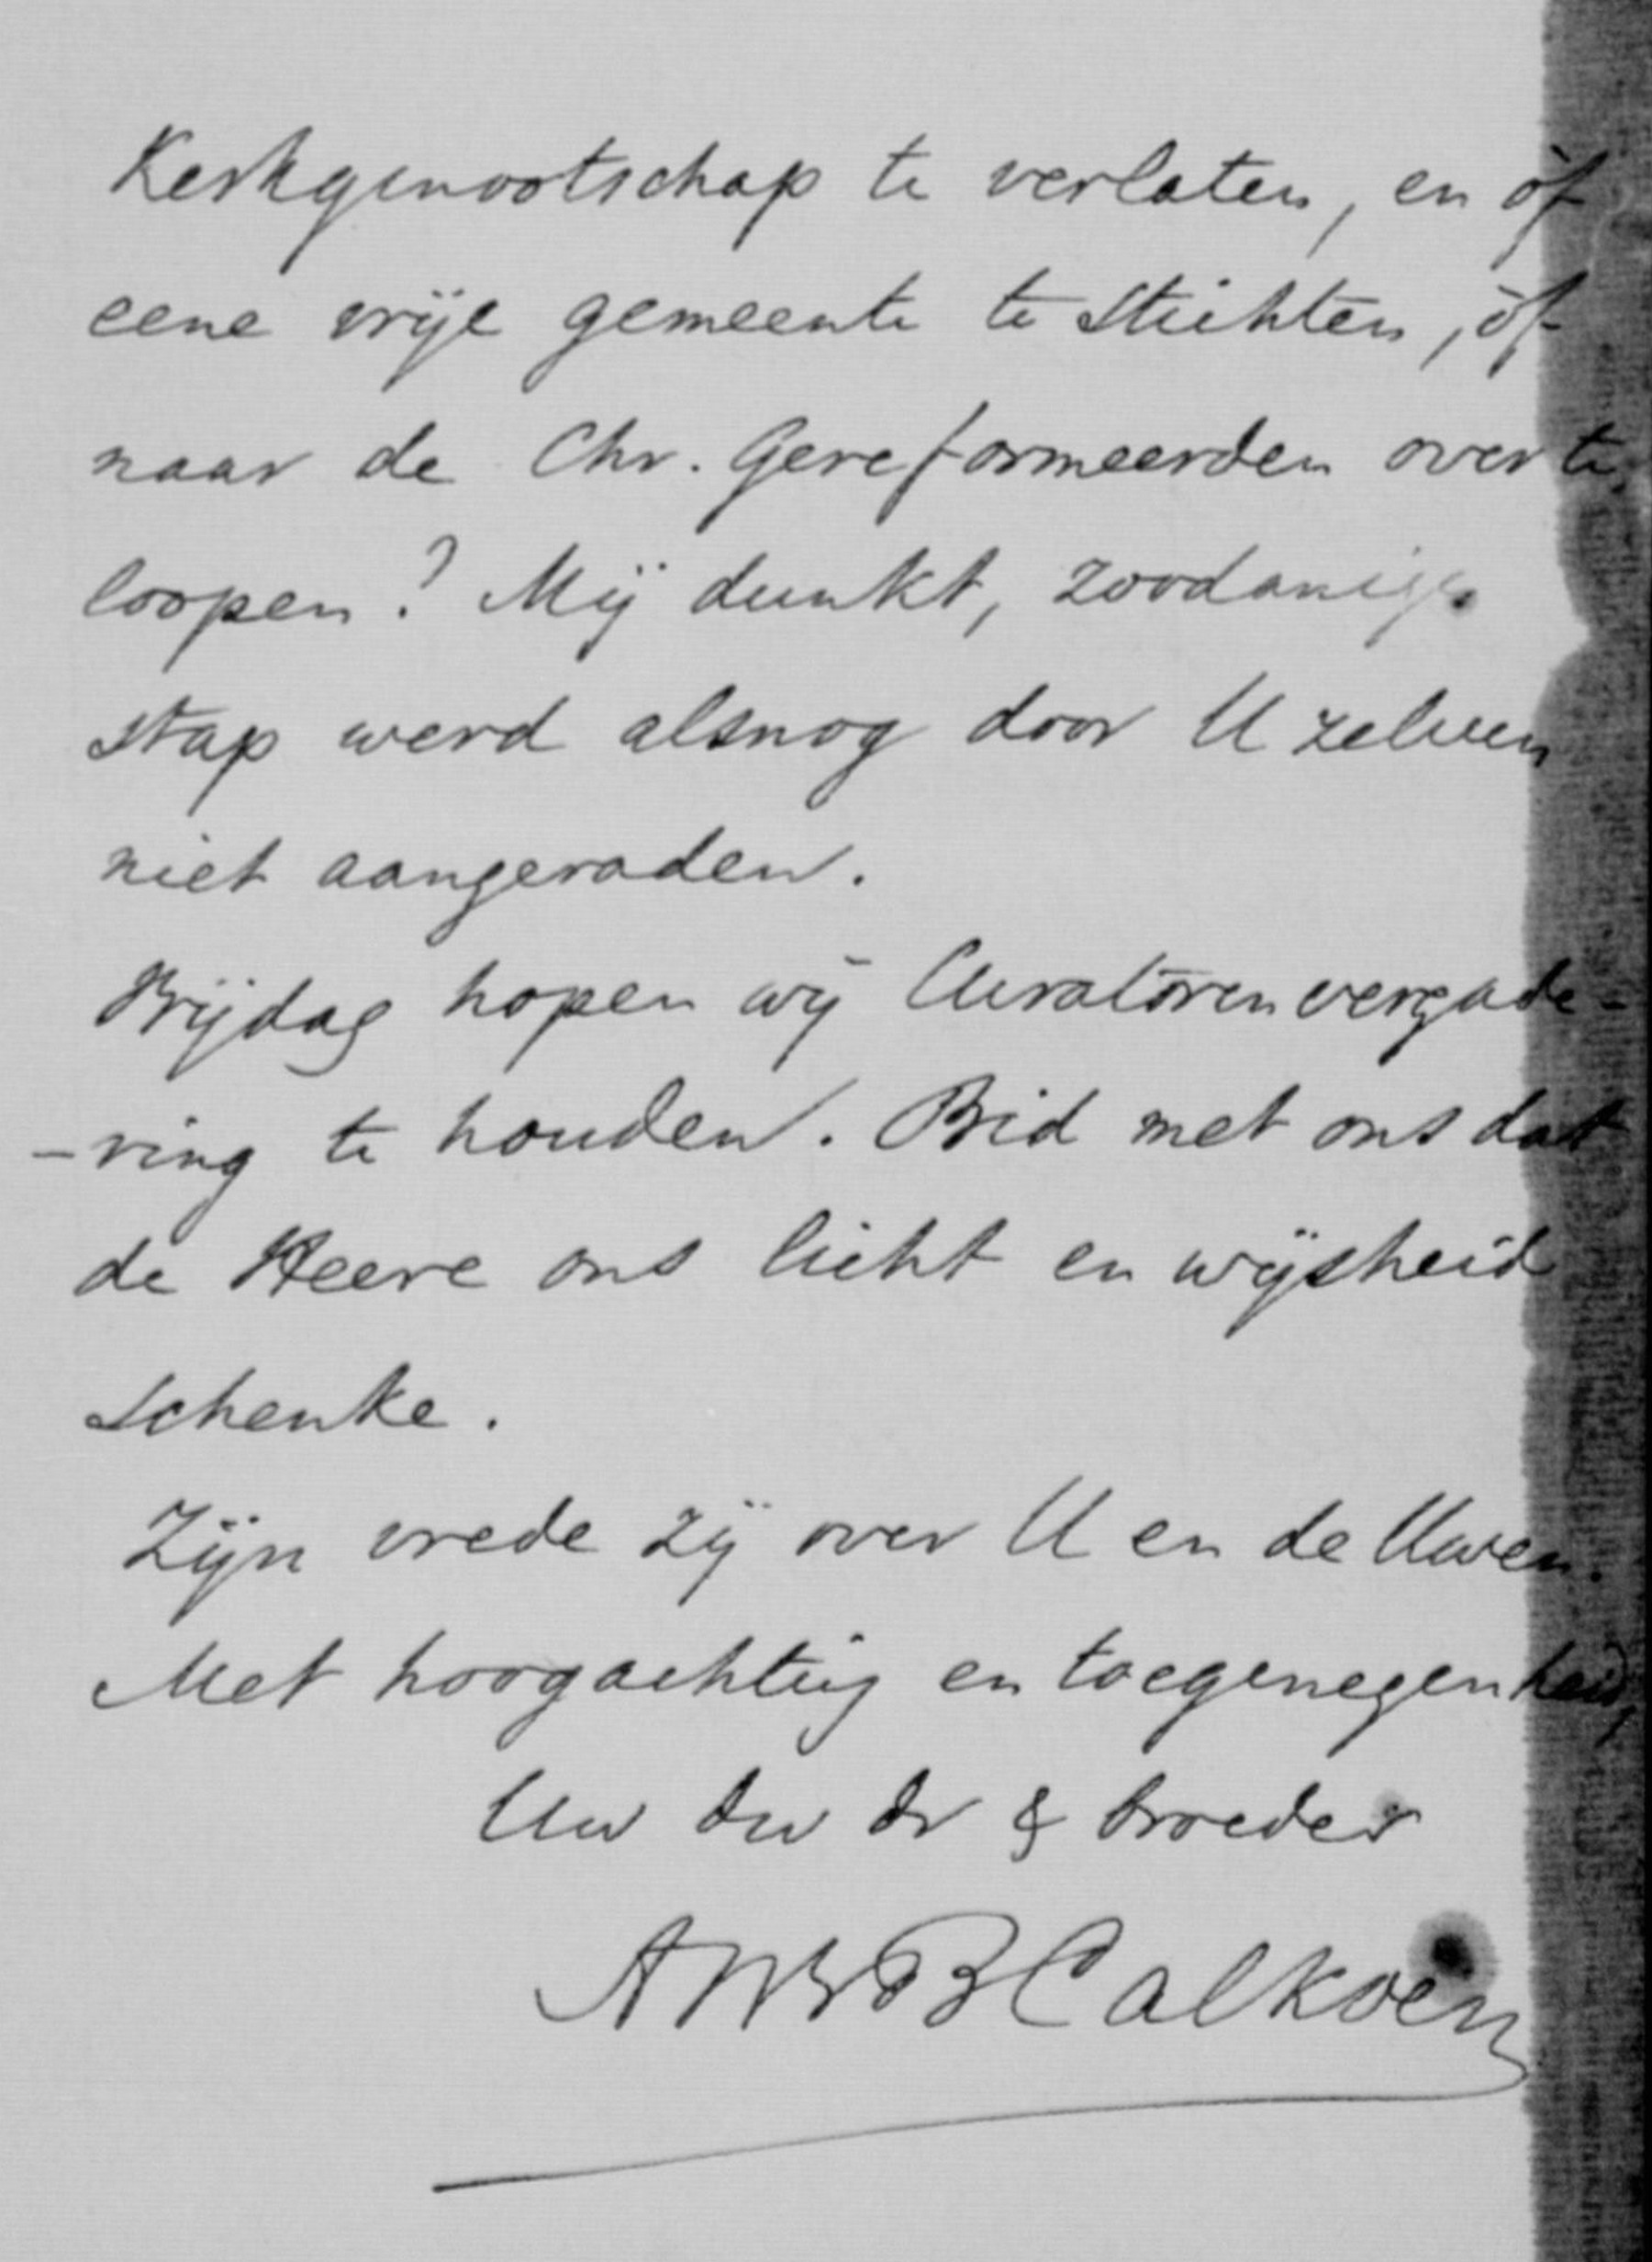 Kerkgenootschap te verlaten, en òf
eene vrije gemeente te stichten, òf
naar de Chr. Gereformeerden over te
loopen? Mij dunkt, zoodanige
stap werd alsnog door U zelven
niet aangeraden.
Vrijdag hopen wij Curatorenvergade-
-ring te houden. Bid met ons dat
de Heere ons licht en wijsheid
schenke.
Zijn vrede zij over U en de Uwen.
Met hoogachting en toegenegenheid,
Uw dw dr & broeder
Calkoen